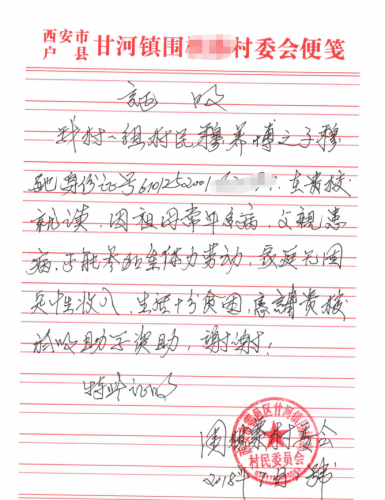 西安市
户 县 甘河镇围 村委会便笺
证 明
我村一组村民穆养博之子穆
身份证号610125200 在贵校
就读,因祖母常年有病,父亲患
病,不能参加重体力劳动,家庭无固
定性收入,生活十分贫困,恳请贵校
给以助于资助,谢谢!
特此证明
围 村委会
2018年 月 号
村民委员会